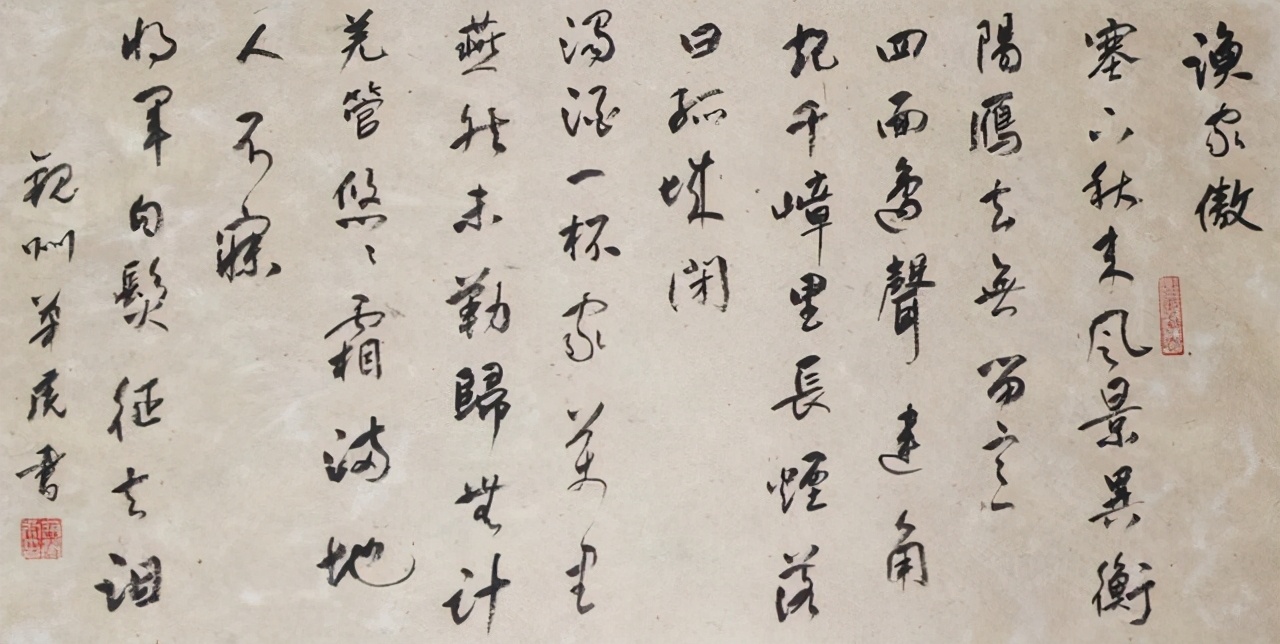 漁家傲
塞下秋来风景異衡
陽鴈去無留意
四面邊聲連角
起千嶂里長煙落
日孤城閉
濁酒一杯家萬里
燕然未勒歸無計
羌管悠〻霜滿地
人不寐
将軍白髮征夫泪
州華虎書